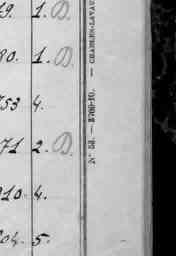 19. 1. D.
80. 1. D.
753 4.
71 2. D.
010. 4.
204. 5.
N° 58. — 3760-10. — CHARLES-LAVAU